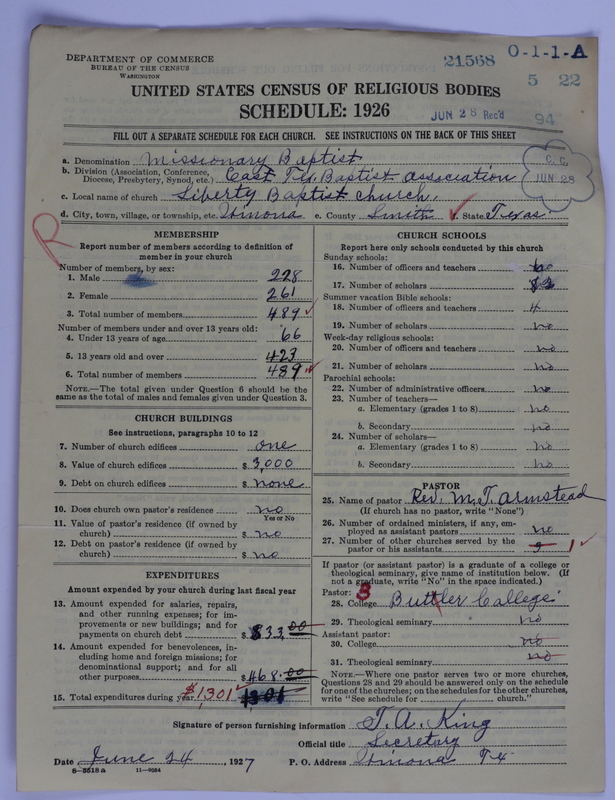 DEPARTMENT OF COMMERCE
BUREAU OF THE CENSUS
WASHINGTON
21568 0-1-1-A
5 22
UNITED STATES CENSUS OF RELIGIOUS BODIES
SCHEDULE: 1926
JUN 28 Rec'd
94
FILL OUT A SEPARATE SCHEDULE FOR EACH CHURCH. SEE INSTRUCTIONS ON THE BACK OF THIS SHEET
a. Denomination Missionary Baptist
b. Division (Association, Conference,
Diocese, Presbytery, Synod, etc.) East Tex Baptist association
C. C.
JUN 28
c. Local name of church Liberty Baptist church,
d. City, town, village, or township, etc. Winona e. County Smith f. State Texas
R
MEMBERSHIP
Report number of members according to definition of
member in your church
Number of members, by sex:
1. Male 228
2. Female 261
3. Total number of members 489
Number of members under and over 13 years old:
4. Under 13 years of age 66
5. 13 years old and over 423
6. Total number of members 489
NOTE.—The total given under Question 6 should be the
same as the total of males and females given under Question 3.
CHURCH BUILDINGS
See instructions, paragraphs 10 to 12
7. Number of church edifices one
8. Value of church edifices $ 3,000
9. Debt on church edifices $ none
10. Does church own pastor's residence? no
Yes or No
11. Value of pastor's residence (if owned by
church) $ no
12. Debt on pastor's residence (if owned by
church) $ no
EXPENDITURES
Amount expended by your church during last fiscal year
13. Amount expended for salaries, repairs,
and other running expenses; for im-
provements or new buildings; and for
payments on church debt $ 833.00
14. Amount expended for benevolences, in-
cluding home and foreign missions; for
denominational support; and for all
other purposes $ 468.00
15. Total expenditures during year $1,301 1301
CHURCH SCHOOLS
Report here only schools conducted by this church
Sunday schools:
16. Number of officers and teachers
17. Number of scholars
Summer vacation Bible schools:
18. Number of officers and teachers 4
19. Number of scholars no
Week-day religious schools:
20. Number of officers and teachers no
21. Number of scholars no
Parochial schools:
22. Number of administrative officers no
23. Number of teachers—
a. Elementary (grades 1 to 8) no
b. Secondary no
24. Number of scholars—
a. Elementary (grades 1 to 8) no
b. Secondary no
PASTOR
25. Name of pastor Rev. M. T. Armstead
(If church has no pastor, write "None")
26. Number of ordained ministers, if any, em-
ployed as assistant pastors no
27. Number of other churches served by the
pastor or his assistants 1
If pastor (or assistant pastor) is a graduate of a college or
theological seminary, give name of institution below. (If
not a graduate, write "No" in the space indicated.)
Pastor: 3
28. College Buttler College
29. Theological seminary no
Assistant pastor:
30. College no
31. Theological seminary no
NOTE.—Where one pastor serves two or more churches,
Questions 28 and 29 should be answered only on the schedule
for one of the churches; on the schedules for the other churches,
write "See schedule for church."
Signature of person furnishing information T. A. King
Official title Secretary
Date June 24, 1927 P. O. Address Winona Tx
8—5518 a 11—9054